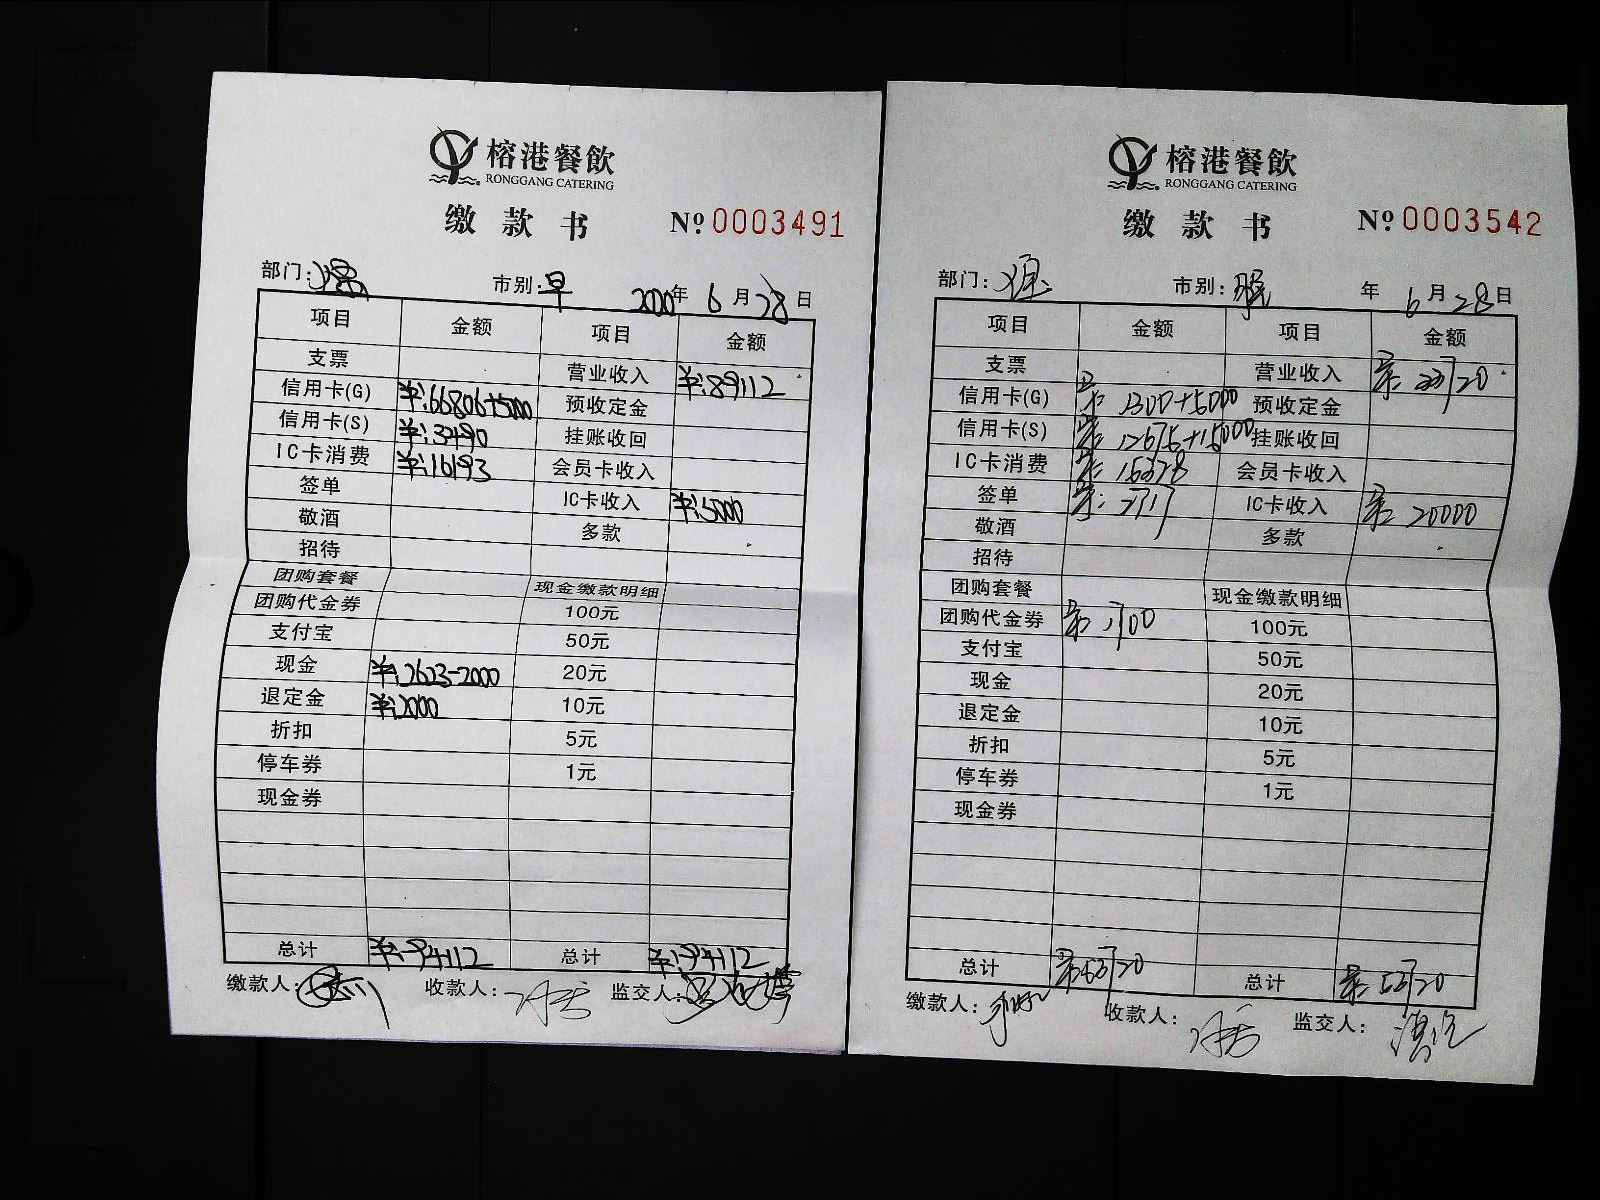 榕港餐飲
RONGGANG CATERING
缴款书 № 0003491
部门: 市别: 早 2020年 6月 28日
项目 金额 项目 金额
支票 营业收入 ¥:89112
信用卡(G) ¥:66806+5000 预收定金
信用卡(S) ¥:3490 挂账收回
IC卡消费 ¥:16193 会员卡收入
签单 IC卡收入 ¥:5000
敬酒 多款
招待
团购套餐 现金缴款明细
团购代金券 100元
支付宝 50元
现金 ¥:2623-2000 20元
退定金 ¥:2000 10元
折扣 5元
停车券 1元
现金券
总计 ¥:94112 总计 ¥:94112
缴款人: 收款人: 监交人:
榕港餐飲
RONGGANG CATERING
缴款书 № 0003542
部门: 市别: 晚 年 6月 28日
项目 金额 项目 金额
支票 营业收入
信用卡(G) 1300+5000 预收定金
信用卡(S) 挂账收回
IC卡消费 会员卡收入
签单 IC卡收入 20000
敬酒 多款
招待
团购套餐 现金缴款明细
团购代金券 100元
支付宝 50元
现金 20元
退定金 10元
折扣 5元
停车券 1元
现金券
总计 总计
缴款人: 收款人: 监交人: